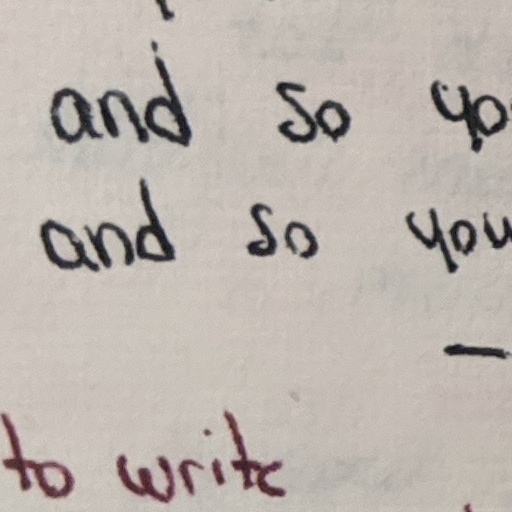 and so yo
and so you
—
to write